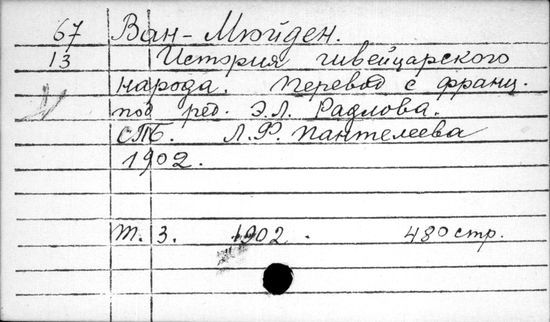 67 Ван-Мюйден.
13 История швейцарского
народа. Перевод с франц.
под ред. Э.Л. Радлова.
СПБ. Л.Ф. Пантелеева
1902.
Т. 3. 1902. 480 стр.